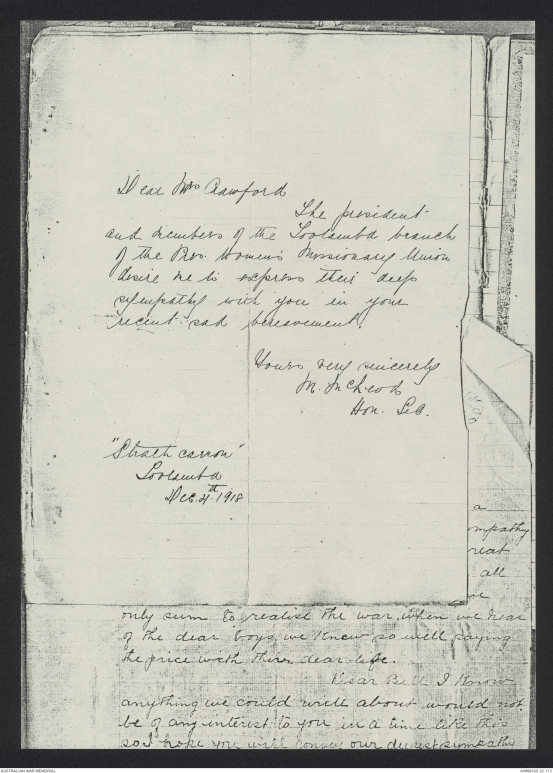 Dear Mrs Crawford
The president
and members of the Toolamba branch
of the Pres. Women's Missionary Union
desire me to express their deep
sympathy with you in your
recent sad bereavement.
Yours very sincerely
M. McLeod
Hon. Sec.
"Strathcarron"
Toolamba
Dec. 4th 1918
a
sympathy
great
all
we
only seem to realise the war when we hear
of the dear boys we knew so well paying
the price with their dear life.
Dear Bell I know
anything we could write about would not
be of any interest to you in a time like this
so I hope you will convey our deepest sympathy
AUSTRALIAN WAR MEMORIAL